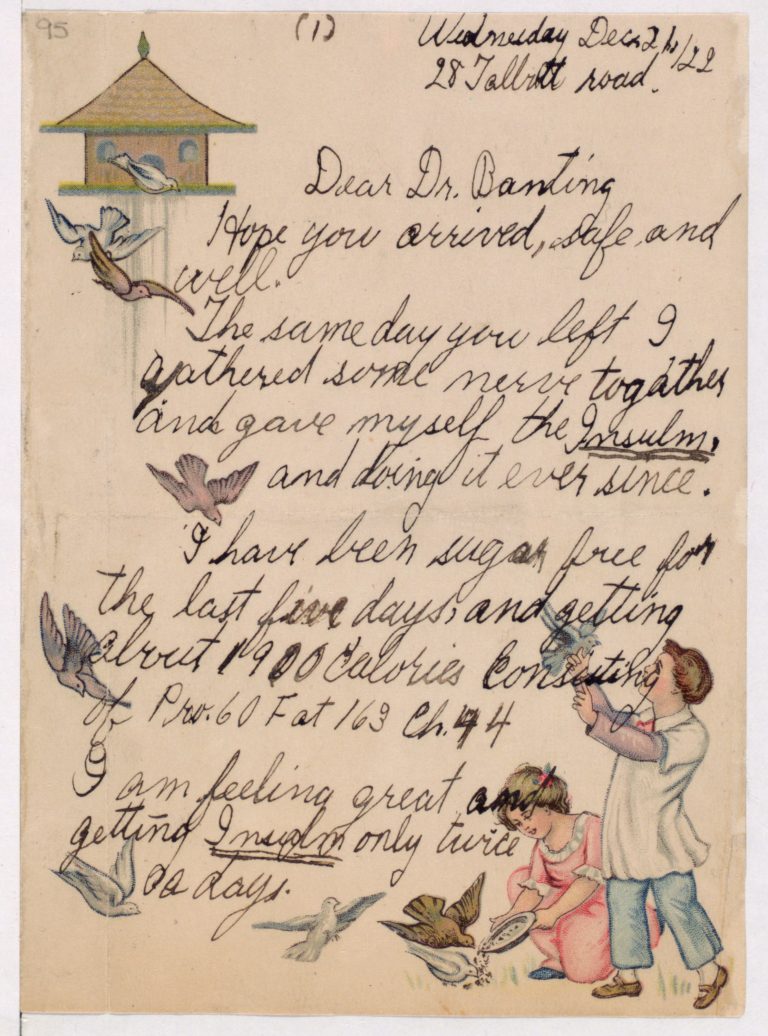 95
(1)
Wednesday Dec. /22
28 Talbott road.
Dear Dr. Banting
Hope you arrived, safe and
well.
The same day you left I
gathered some nerve togather
and gave myself the Insulm,
and doing it ever since.
I have been sugar free for
the last five days, and getting
about 1900 Calories Consisting
of Pro. 60 Fat 163 Ch. 44
I am feeling great and
getting Insulm only twice
a days.